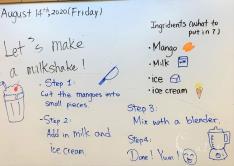 August 14th, 2020 (Friday)
Let's make
a milkshake!
• Step 1:
Cut the mangoes into
small pieces.
• Step 2:
Add in milk and
ice cream
Ingredients (What to
put in?)
• Mango
• Milk
• ice
• ice cream
Step 3:
Mix with a blender.
Step 4:
Done! Yum!